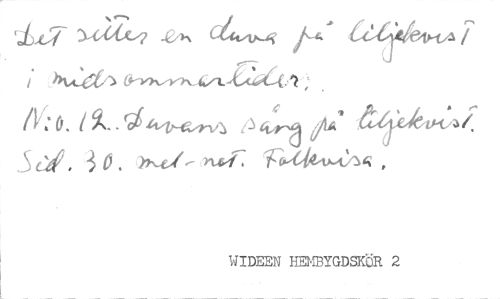 Det sitter en duva på liljekvist
i midsommartider.
N:o. 12. Duvans sång på liljekvist.
Sid. 30. mel-not. Folkvisa.
WIDEEN HEMBYGDSKÖR 2